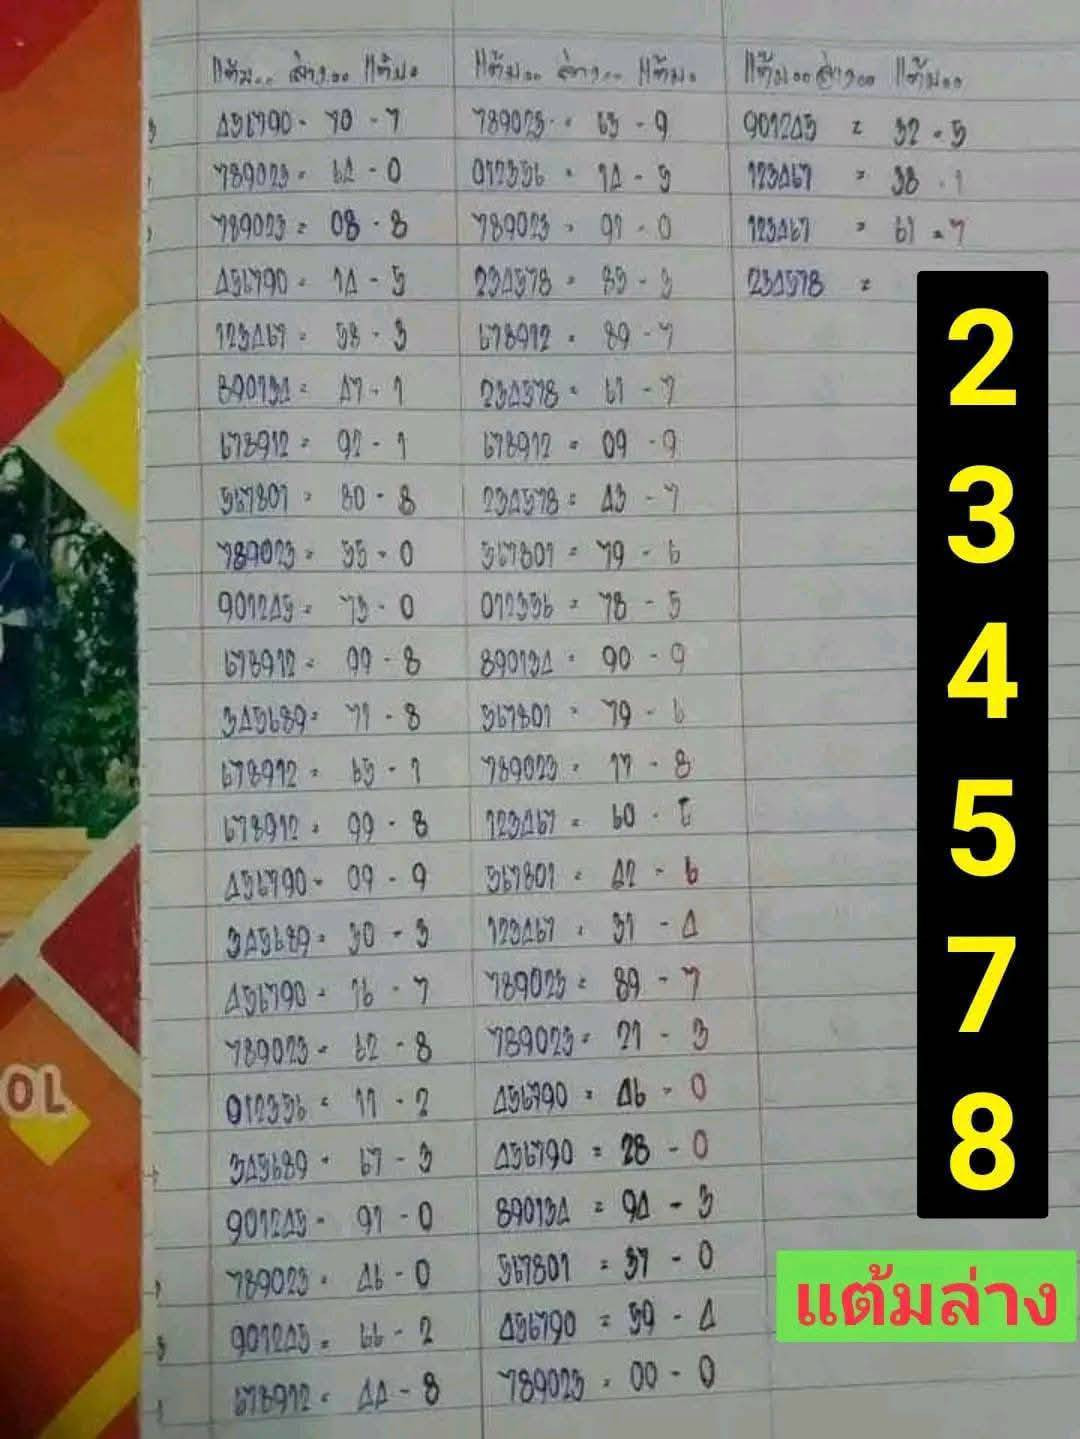 แต้ม.. ล่าง.. แต้ม. แต้ม.. ล่าง.. แต้ม. แต้ม..ล่าง.. แต้ม..
456790 - 70 - 7 789023 = 63 - 9 901245 = 32 - 5
789023 = 64 - 0 012356 = 14 - 5 123467 = 38 - 1
789023 = 08 - 8 789023 = 91 - 0 123467 = 61 - 7
456790 = 14 - 5 234578 = 85 - 3 234578 =
123467 = 58 - 3 678912 = 89 - 7
890134 = 47 - 1 234578 = 61 - 7
678912 = 92 - 1 678912 = 09 - 9
567801 = 80 - 8 234578 = 43 - 7
789023 = 55 - 0 567801 = 79 - 6
901245 = 73 - 0 012356 = 78 - 5
678912 = 99 - 8 890134 = 90 - 9
345689 = 71 - 8 567801 = 79 - 6
678912 = 65 - 1 789023 = 17 - 8
678912 = 99 - 8 123467 = 60 -
456790 - 09 - 9 567801 = 42 - 6
345689 = 30 - 3 123467 = 31 - 4
456790 - 16 - 7 789023 = 89 - 7
789023 - 62 - 8 789023 = 21 - 3
012356 = 11 - 2 456790 = 46 - 0
345689 - 67 - 3 456790 = 28 - 0
901245 - 91 - 0 890134 = 94 - 3
789023 = 46 - 0 567801 = 37 - 0
901245 = 66 - 2 456790 = 59 - 4
678912 = 44 - 8 789023 = 00 - 0
2
3
4
5
7
8
แต้มล่าง
OL